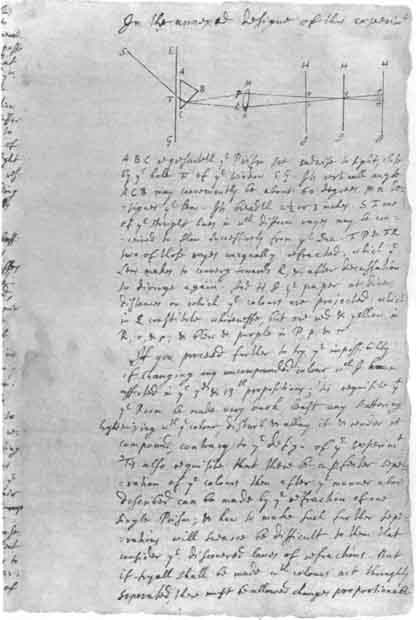 In the annexed designe of this experiment
S
E
A
B
T
C
G
M
P
R
N
H
H
H
A B C expresseth yᵉ Prism set endwise to sight, close
by yᵉ hole F of yᵉ window E G. Its verticall angle
A C B may conveniently be about 60 degrees. M N de-
signes yᵉ Lens. Its breadth 2½ or 3 inches. S F one
of yᵉ streight lines in wᶜʰ difform rayes may be con-
ceived to flow successively from yᵉ Sun. F P & F R
two of those rayes unequally refracted, which yᵉ
Lens makes to converge towards Q, & after decussation
to diverge again. And H I yᵉ paper at divers
distances on which yᵉ colours are projected, which
in Q constitute whitenesse, but are red & yellow in
R, r, & ρ; & blew & purple in P, p, & π.
If you proceed further to try yᵉ impossibility
of changing any uncompounded colour wᶜʰ I have
asserted in yᵉ 3ᵈ & 13ᵗʰ propositions, 'tis requisite yᵗ
yᵉ Room be made very dark, least any scattering
light mixing wᵗʰ yᵉ colour disturb & allay it & render it
compound, contrary to yᵉ designe of yᵉ experiment
'Tis also requisite that there be a perfecter sepa-
ration of yᵉ colours then after yᵉ manner above
described can be made by yᵉ refraction of one
single Prism; & how to make such further sepa-
rations will scarce be difficult to them that
consider yᵉ discovered laws of refractions. But
if tryall shall be made wᵗʰ colours not throughly
separated there must be allowed changes proportionable